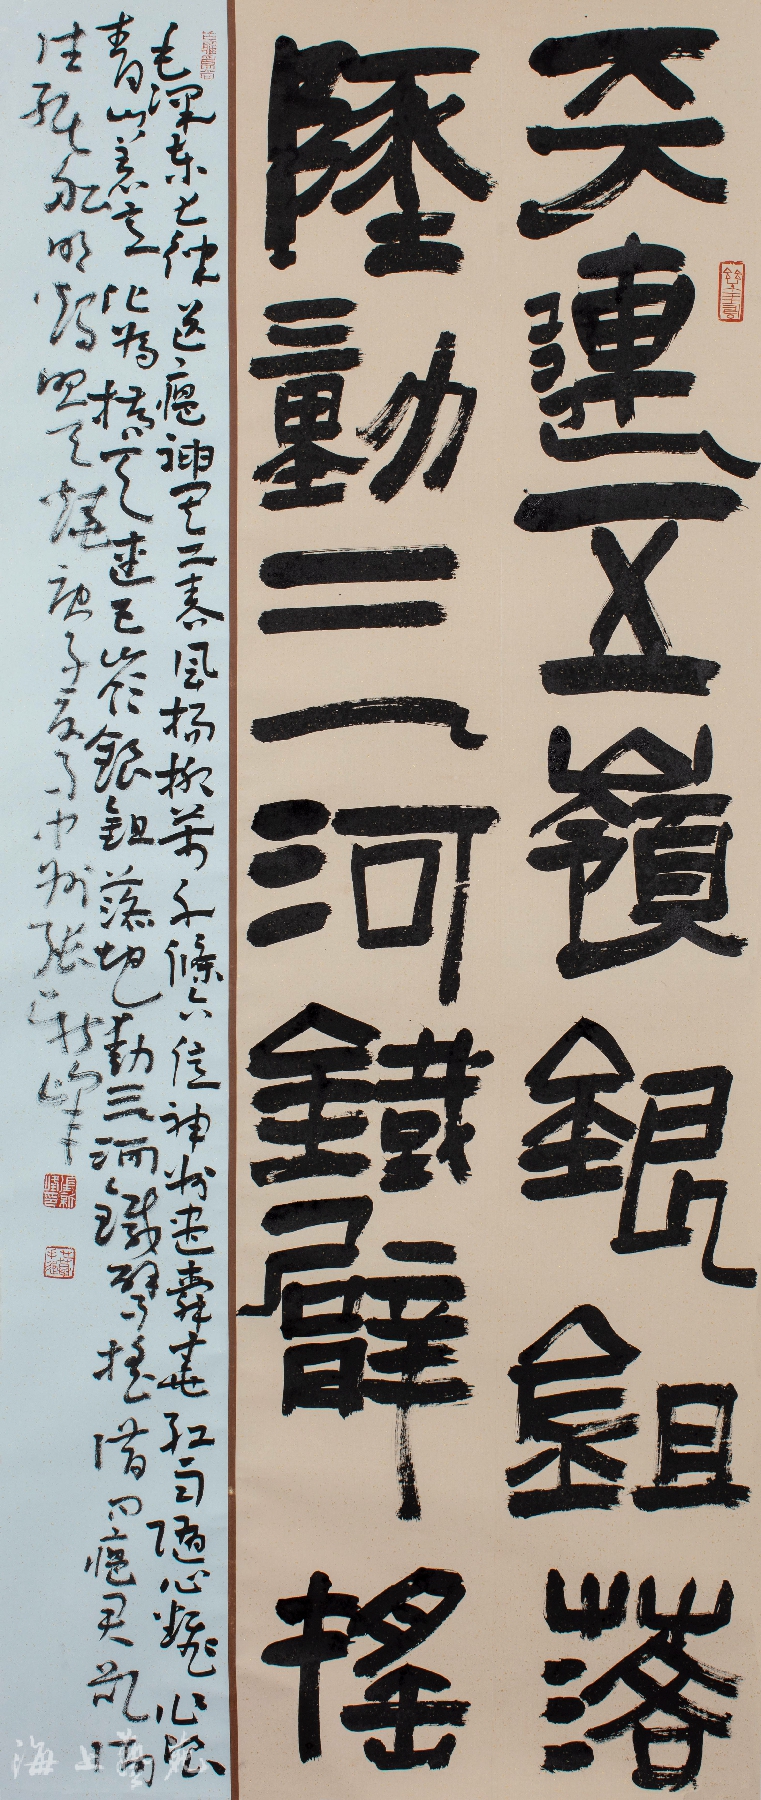 天連五嶺銀鉏落
墬動三河鐵臂搖
毛澤東七律送瘟神其二春風楊柳萬千條六億神州盡舜堯紅雨隨心飜作浪
青山着意化為橋天連五嶺銀鉏落地動三河鐵臂搖借問瘟君欲何
往紙船明燭照天燒庚子夏月中州張新峰
海上藝苑